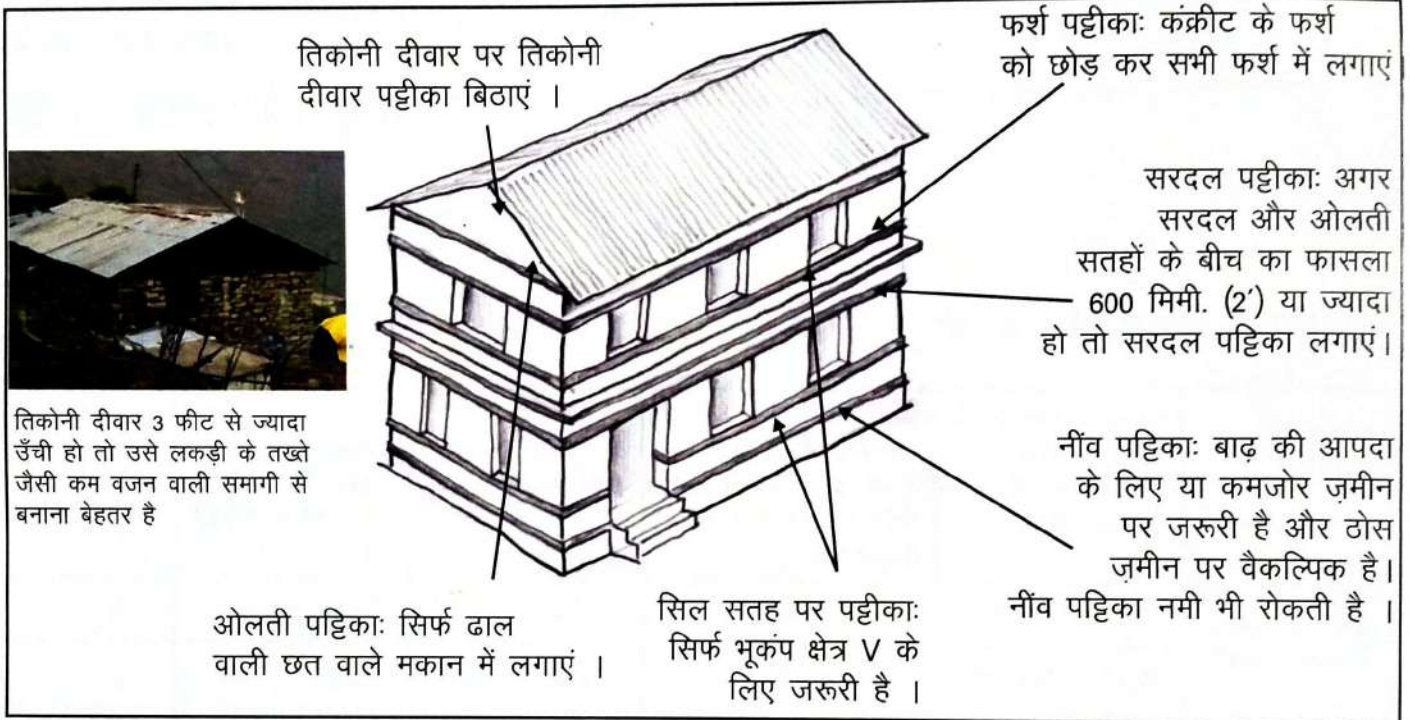 तिकोनी दीवार पर तिकोनी
दीवार पट्टीका बिठाएं ।
फर्श पट्टीकाः कंक्रीट के फर्श
को छोड़ कर सभी फर्श में लगाएं
सरदल पट्टीकाः अगर
सरदल और ओलती
सतहों के बीच का फासला
600 मिमी. (2′) या ज्यादा
हो तो सरदल पट्टिका लगाएं।
तिकोनी दीवार 3 फीट से ज्यादा
उँची हो तो उसे लकड़ी के तख्ते
जैसी कम वजन वाली समागी से
बनाना बेहतर है
नींव पट्टिकाः बाढ़ की आपदा
के लिए या कमजोर ज़मीन
पर जरूरी है और ठोस
ज़मीन पर वैकल्पिक है।
नींव पट्टिका नमी भी रोकती है ।
ओलती पट्टिकाः सिर्फ ढाल
वाली छत वाले मकान में लगाएं ।
सिल सतह पर पट्टीकाः
सिर्फ भूकंप क्षेत्र V के
लिए जरूरी है ।